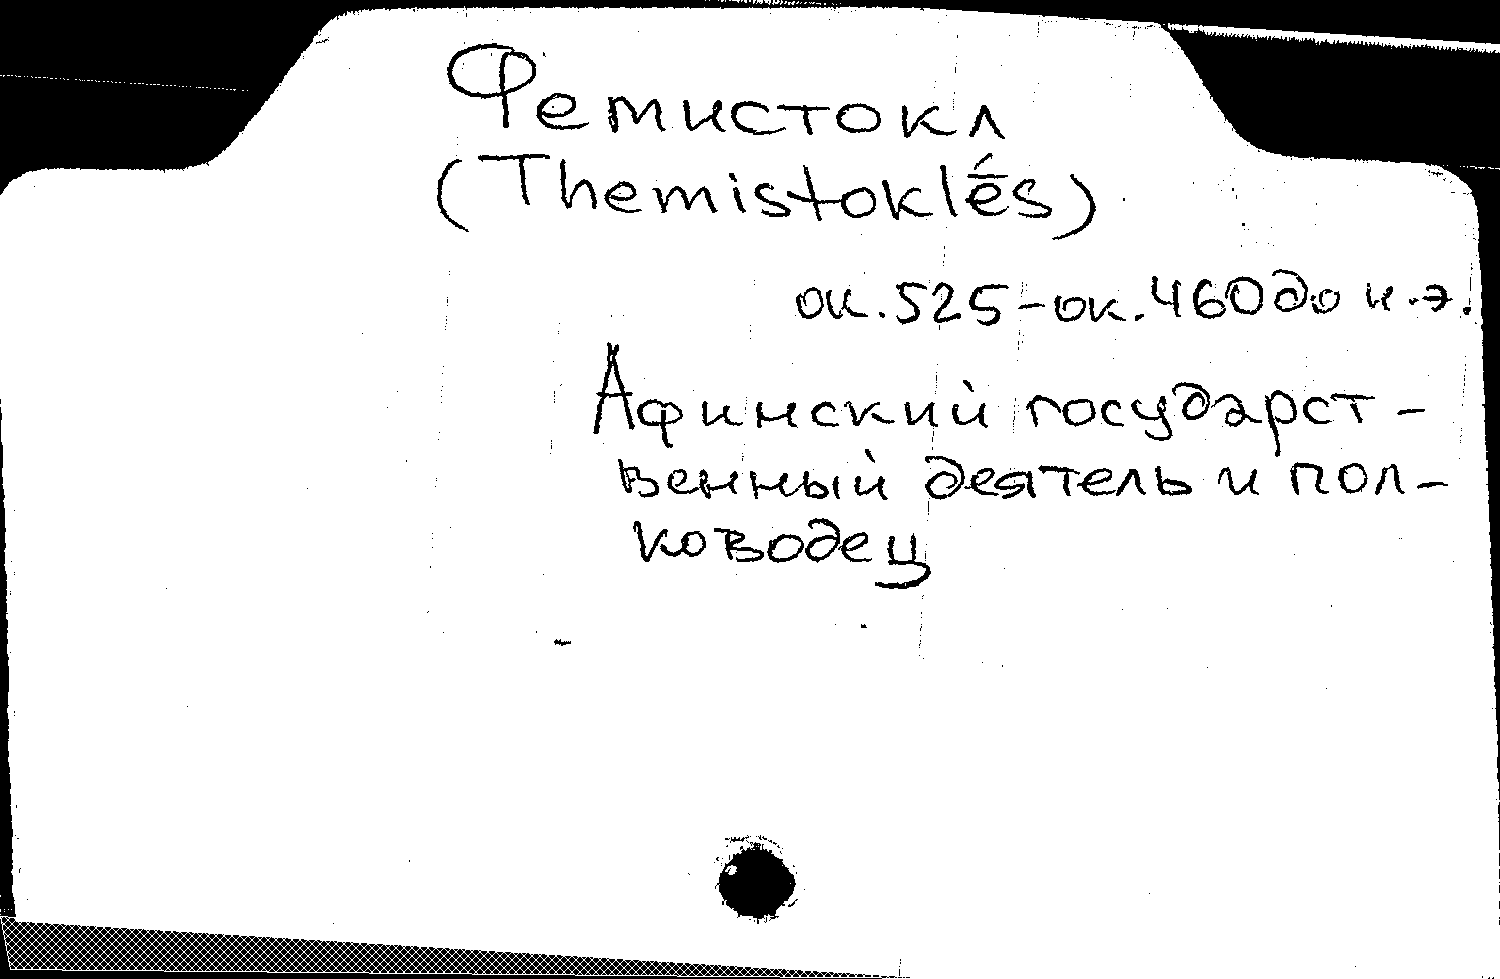 Фемистокл
(Themistoklḗs)
ок. 525-ок. 460 до н.э.
Афинский государст-
венный деятель и пол-
ководец